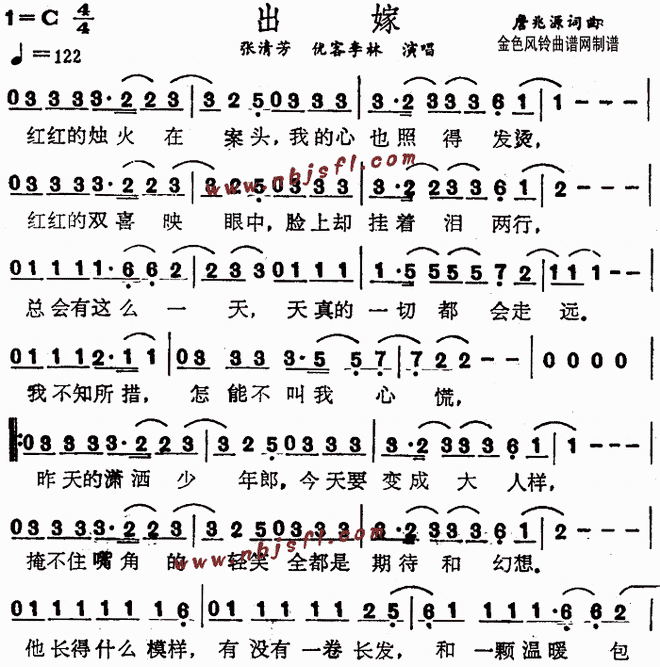 1=C 4/4 出 嫁 詹兆源词曲
♩=122 张清芳 优客李林 演唱 金色风铃曲谱网制谱
03 33 33·2 23 | 3 2 5 03 33 | 3·2 33 36 1 | 1 - - - |
红红的烛火 在 案头,我的心 也照 得 发烫,
www.nbjsfl.com
03 33 33·2 23 | 3· 2 5 03 33 | 3·2 33 36 1 | 2 - - - |
红红的双喜 映 眼中,脸上却 挂着 泪 两行,
01 11 11·6 6 2 | 2 3 3 01 11 | 1·5 55 57 2 | 11 1 - - |
总会有这么 一 天, 天真的 一切 都 会走 远。
01 11 2·1 1 | 03 33 3·5 57 | 7 2 2 - - | 0 0 0 0 |
我不知所措, 怎 能不 叫我 心 慌,
03 33 33·2 23 | 3 2 5 03 33 | 3·2 33 36 1 | 1 - - - |
昨天的潇洒 少 年郎,今天要 变成 大 人样,
03 33 33·2 23 | 3 2 5 03 33 | 3·2 33 36 1 | 2 - - - |
掩不住嘴角 的 轻笑 全都是 期待 和 幻想。
www.nbjsfl.com
01 11 11 16 | 01 11 11 25 | 61 11 1·6 62 |
他长得什么 模样, 有没有一卷长发, 和 一颗温暖 包